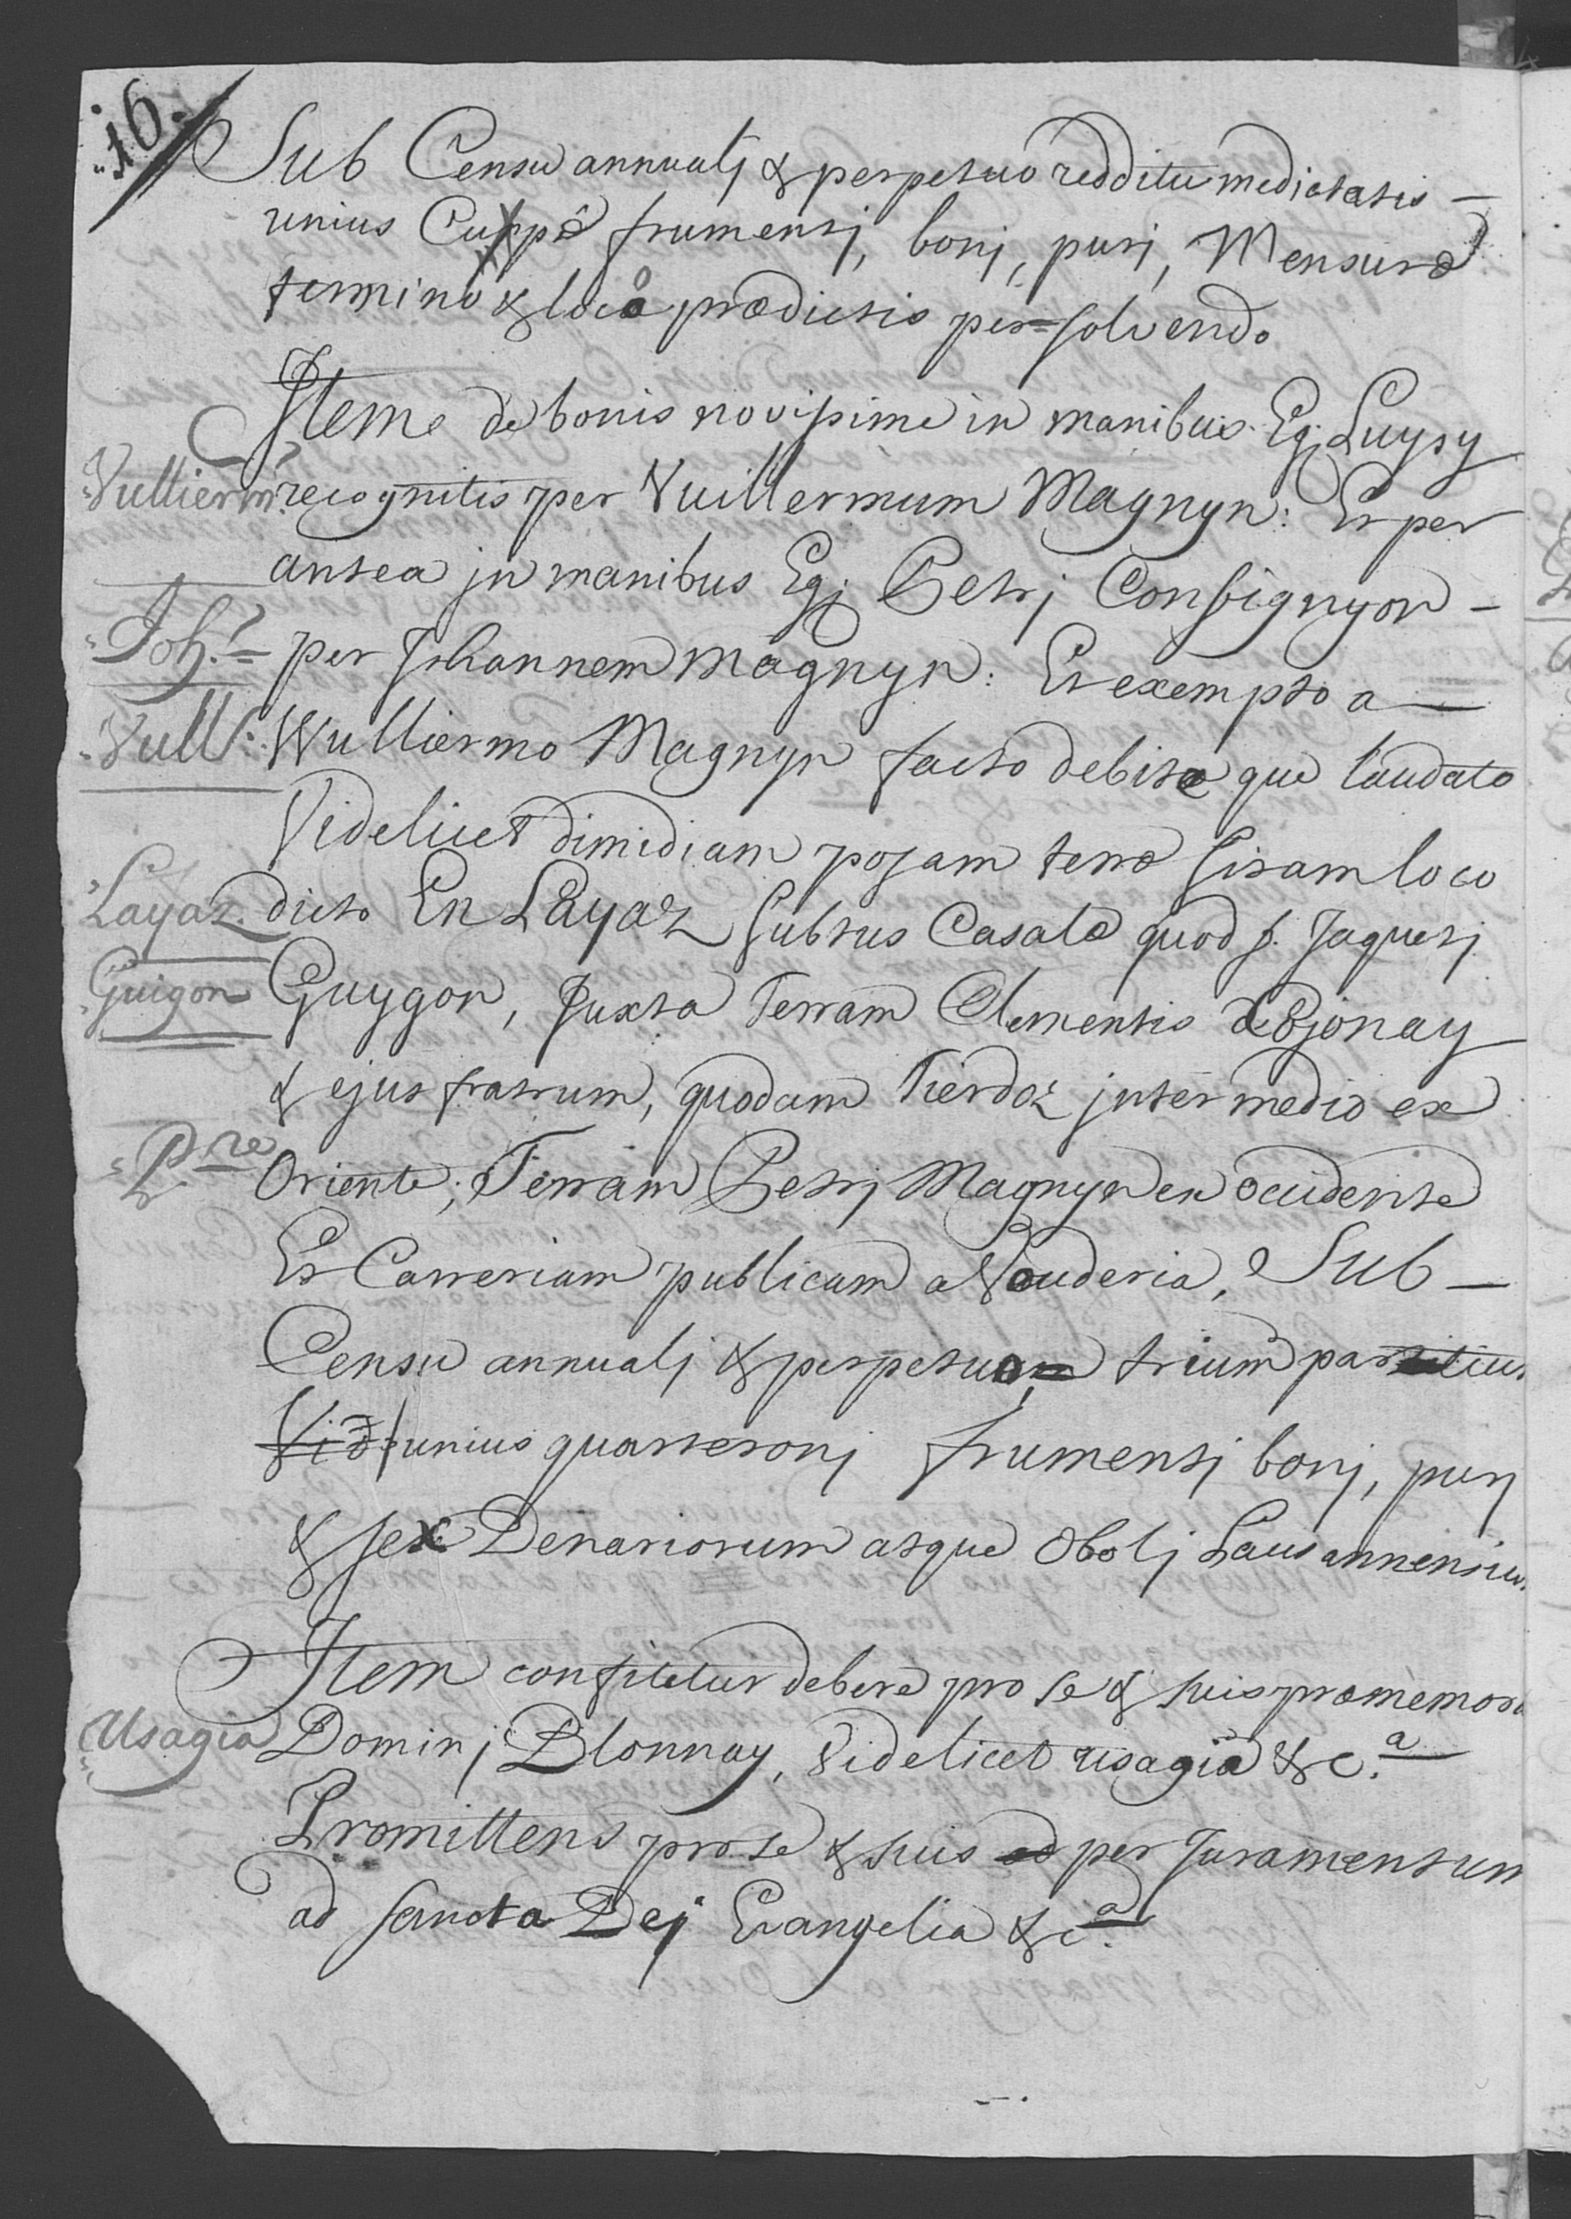 16.
Sub Censu annualj & perpetuo redditu medietatis -
unius Cuppæ frumentj, bonj, purj, Mensuræ
termino & loco prædictis per=solvendo
Item de bonis novissime in manibus Egj. Luysy
Vulliermi recognitis per Vuillermum Magnyn: Et per
antea jn manibus Egj Petrj Consignyon -
Joh.s= per Johannem Magnyn: Et exempto a -
Vull: Wulliermo Magnyn facto debite que laudato
Videlicet dimidiam posam terræ sitam loco
Layaz. dicto En Layaz subtus Casale quod f. Jaquetj
Guigon Guygon, Juxta Terram Clementis de Pjonay
& ejus fratrum, quodam Tierdoz jntermedio ex
P.re Oriente; Terram Petrj Magnyn ex occidente
Et Carreriam publicam a Vouderia, Sub -
Censu annualj & perpetuo trium partium
Vid unius quarteronj frumentj bonj, purj
& sex Denariorum atque Obolj Lausannensium.
Item confitetur debere pro se & suis præmemorati
Usagia Dominj Blonnay, Videlicet usagia &c.a
Promittens pro se & suis ad per Juramentum
ad sancta Dej Evangelia &c.a